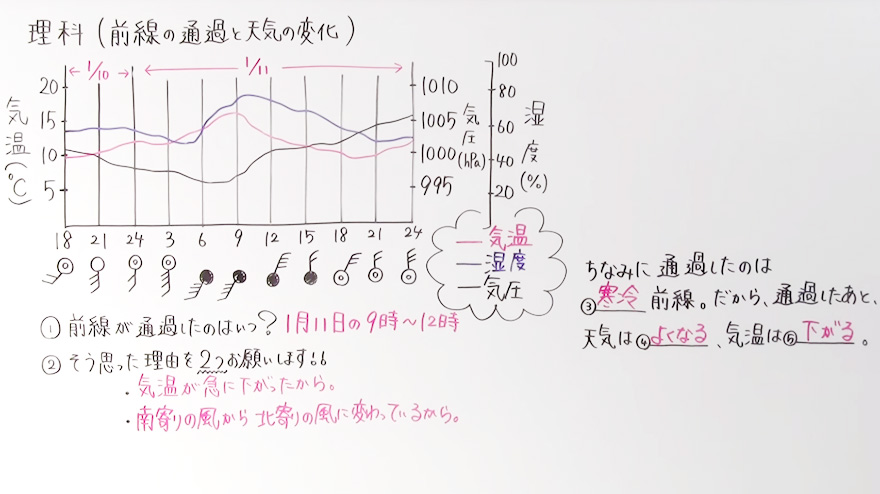 理科(前線の通過と天気の変化)
1/10 1/11
気温(℃)
20
15
10
5
1010
1005
1000
995
気圧(hPa)
100
80
60
40
20
湿度(%)
18 21 24 3 6 9 12 15 18 21 24
気温
湿度
気圧
① 前線が通過したのはいつ? 1月11日の9時~12時
② そう思った理由を2つお願いします!!
・気温が急に下がったから。
・南寄りの風から北寄りの風に変わっているから。
ちなみに通過したのは
③寒冷前線。だから、通過したあと、
天気は④よくなる、気温は⑤下がる。